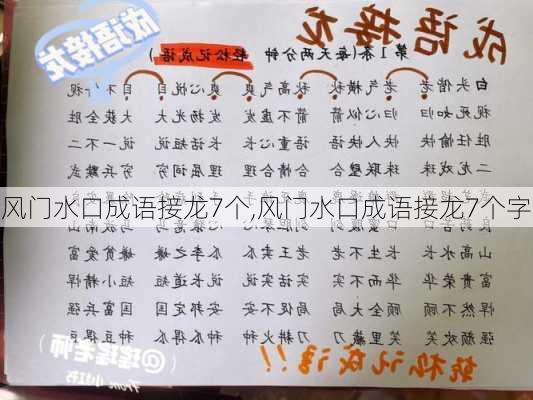 成语接龙
成语接龙
第1条(每天两分钟 轻松记成语)
白头偕老 老气横秋 秋高气爽 爽心悦目 目不视
视死如归 归心似箭 箭不虚发 发扬光大 大获全胜
胜任愉快 快人快语 语重心长 长话短说 说一不二
二龙戏珠 珠联璧合 合情合理 理屈词穷 穷兵黩武
风门水口成语接龙7个,风门水口成语接龙7个字
山高水长 长生不老 老王卖瓜 瓜李之嫌 嫌贫爱富
富贵荣华 华而不实 实话实说 说长道短 短小精悍
悍然不顾 顾全大局 局促不安 安邦定国 国富兵强
强颜欢笑 笑里藏刀 刀耕火种 种瓜得瓜 种豆得豆
轻松记成语!!
@瑶瑶老师
From 小红书